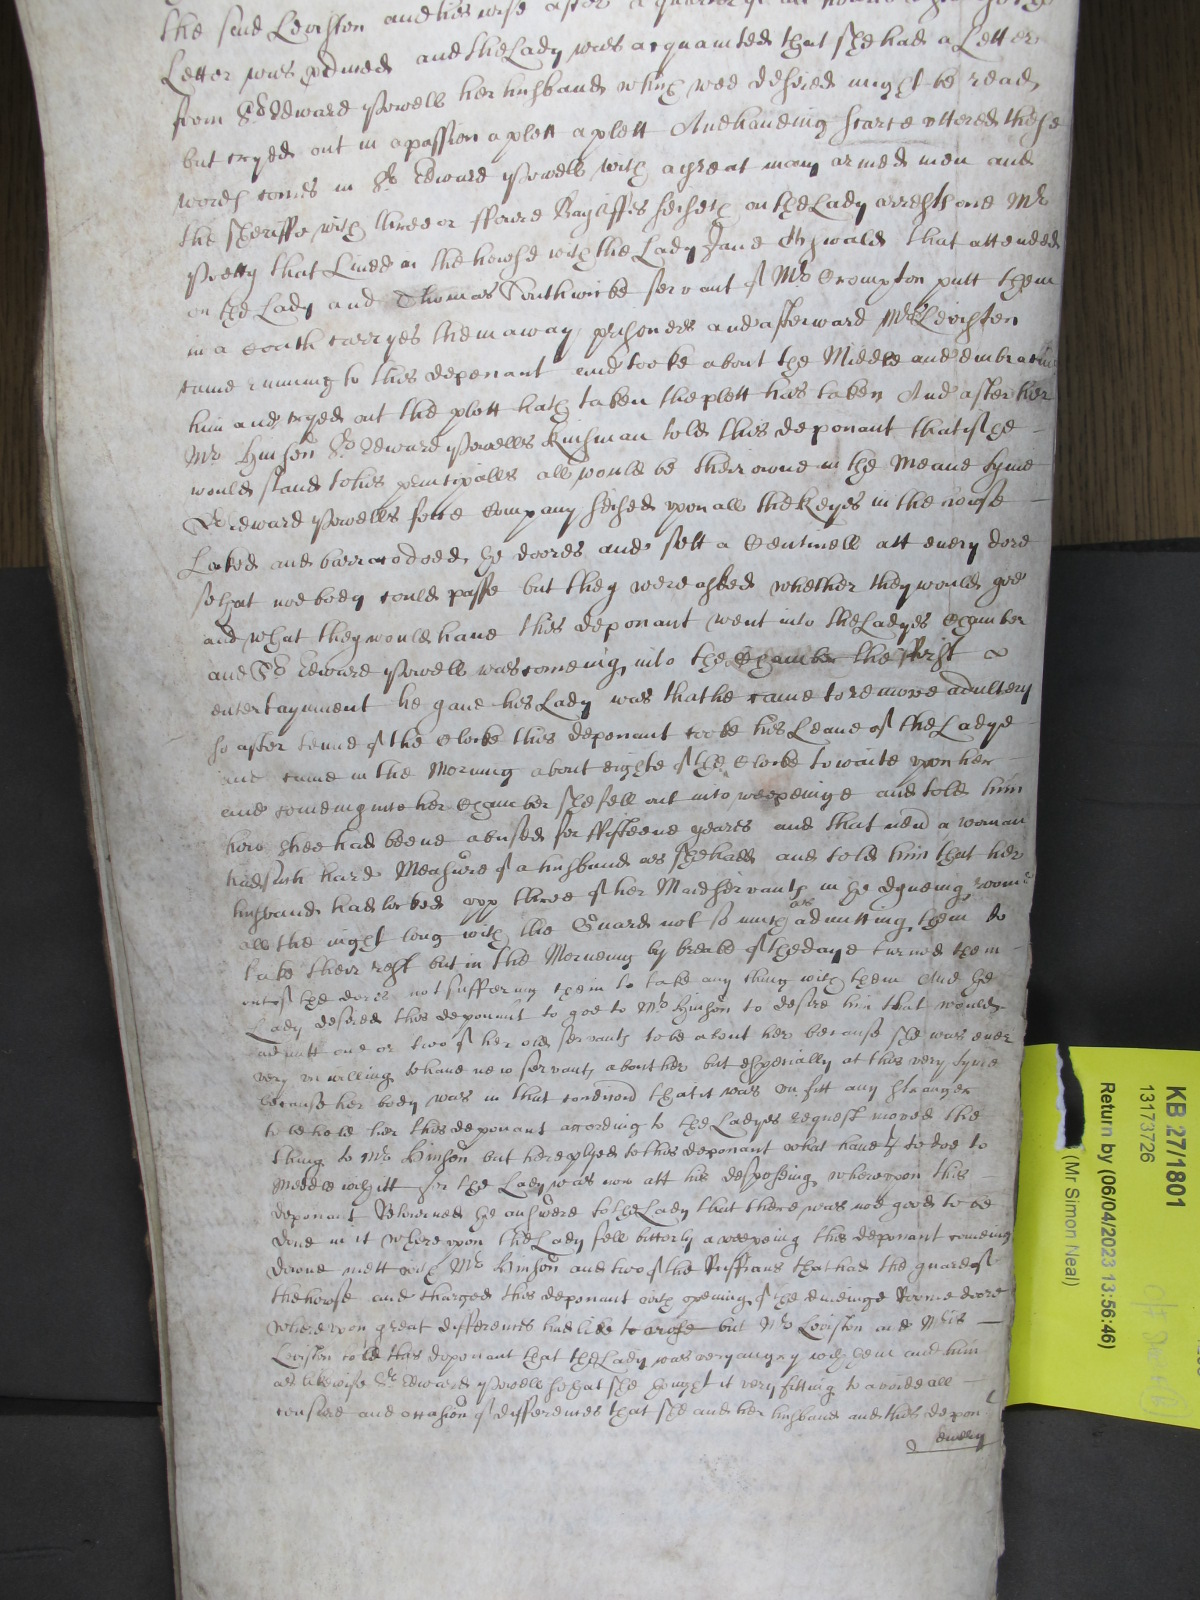 the said Leviston and his wife after a quarter of an
Letter was and the Lady was acquainted that she had a Letter
from Sr Edward Powell her husband which wee desired might be read
but cryed out in a passion a plott a plott And haveing scarce uttered these
words comes in Sr Edward Powell with a great many armed men and
the sheriffe with three or ffoure Bayliffes on the Lady arrests one Mr
Pretty that Lived in the howse with the Lady Jane that attended
on the Lady and Thomas Southwicke servant of Mr Crompton putt them
in a coach carryes them away prisoners and afterward Mris Levisten
came running to this deponent and tooke about the Middle and embracing
him and cryed out the plott hath taken the plott has taken And after her
Mr Hinson Sr Edward Powells Kinsman told this deponant that if he
would stand to his principalls all would be their owne in the Meane tyme
Sr Edward Powells company seised upon all the Keyes in the howse
Locked and barracodoed the doores and sett a Centinell att every dore
so that noe body could passe but they were asked whether they would goe
and what they would have this deponant went into the Ladyes Chamber
and Sr Edward Powell was comeing into the Chamber the First
entertaynment he gave his Lady was that he came to remove adultery
so after tenne of the Clocke this deponant tooke his Leave of the Ladye
and came in the Morning about eighte of the Clocke to waite upon her
and comeing into her Chamber she fell out into weepeinge and told him
how shee had beene abused for ffifteene yeares and that never a woman
had such hard Measure of a husband as she had and told him that her
husband had locked upp three of her Maidservants in the dyneing roome
all the night long with the Guard not so much as admitting them to
take their rest but in the Morneing by breake of the daye turned them
out of the dores not suffering them to take any thing with them And the
Lady desired this deponant to goe to Mr Hinson to desire him that would
admitt one or two of her old servants to be about her because she was ever
very unwilling to have new servants about her but especially at this very tyme
because her body was in that condicion that it was unfitt any stranger
to behold her this deponant according to the Ladyes request moved the
thing to Mr Hinson but he replyed to this deponant what have I to doe to
meddle with itt for the Lady was now att his disposing whereupon this
deponant Returned the answere to the Lady that there was noe good to be
done in it whereupon the Lady fell bitterly a weepeing this deponant comeing
downe mett with Mr Hinson and two of the Ruffians that had the guard of
the howse and charged this deponant with opening of the dineinge Roome doore
whereupon great differences had like to arose but Mr Leviston and Mris
Leviston told this deponant that the Lady was very angry with them and him
as likewise Sr Edward Powell so that she thought it very fitting to avoide all
censure and occasion of differences that she and her husband and this depon

KB 27/1801
13173726
Return by (06/04/2023 13:56:46)
(Mr Simon Neal)